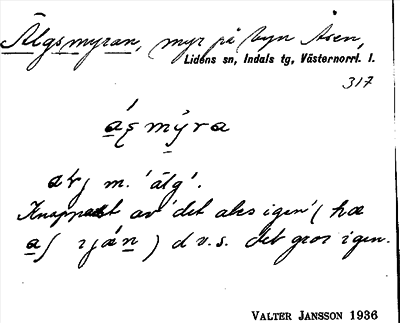 Älgsmyran, myr på byn Åsen,
Lidens sn, Indals tg, Västernorrl. l.
317
m. 'älg'.
Knappast av 'det als igen' (ha
) d.v.s. det gror igen.
VALTER JANSSON 1936